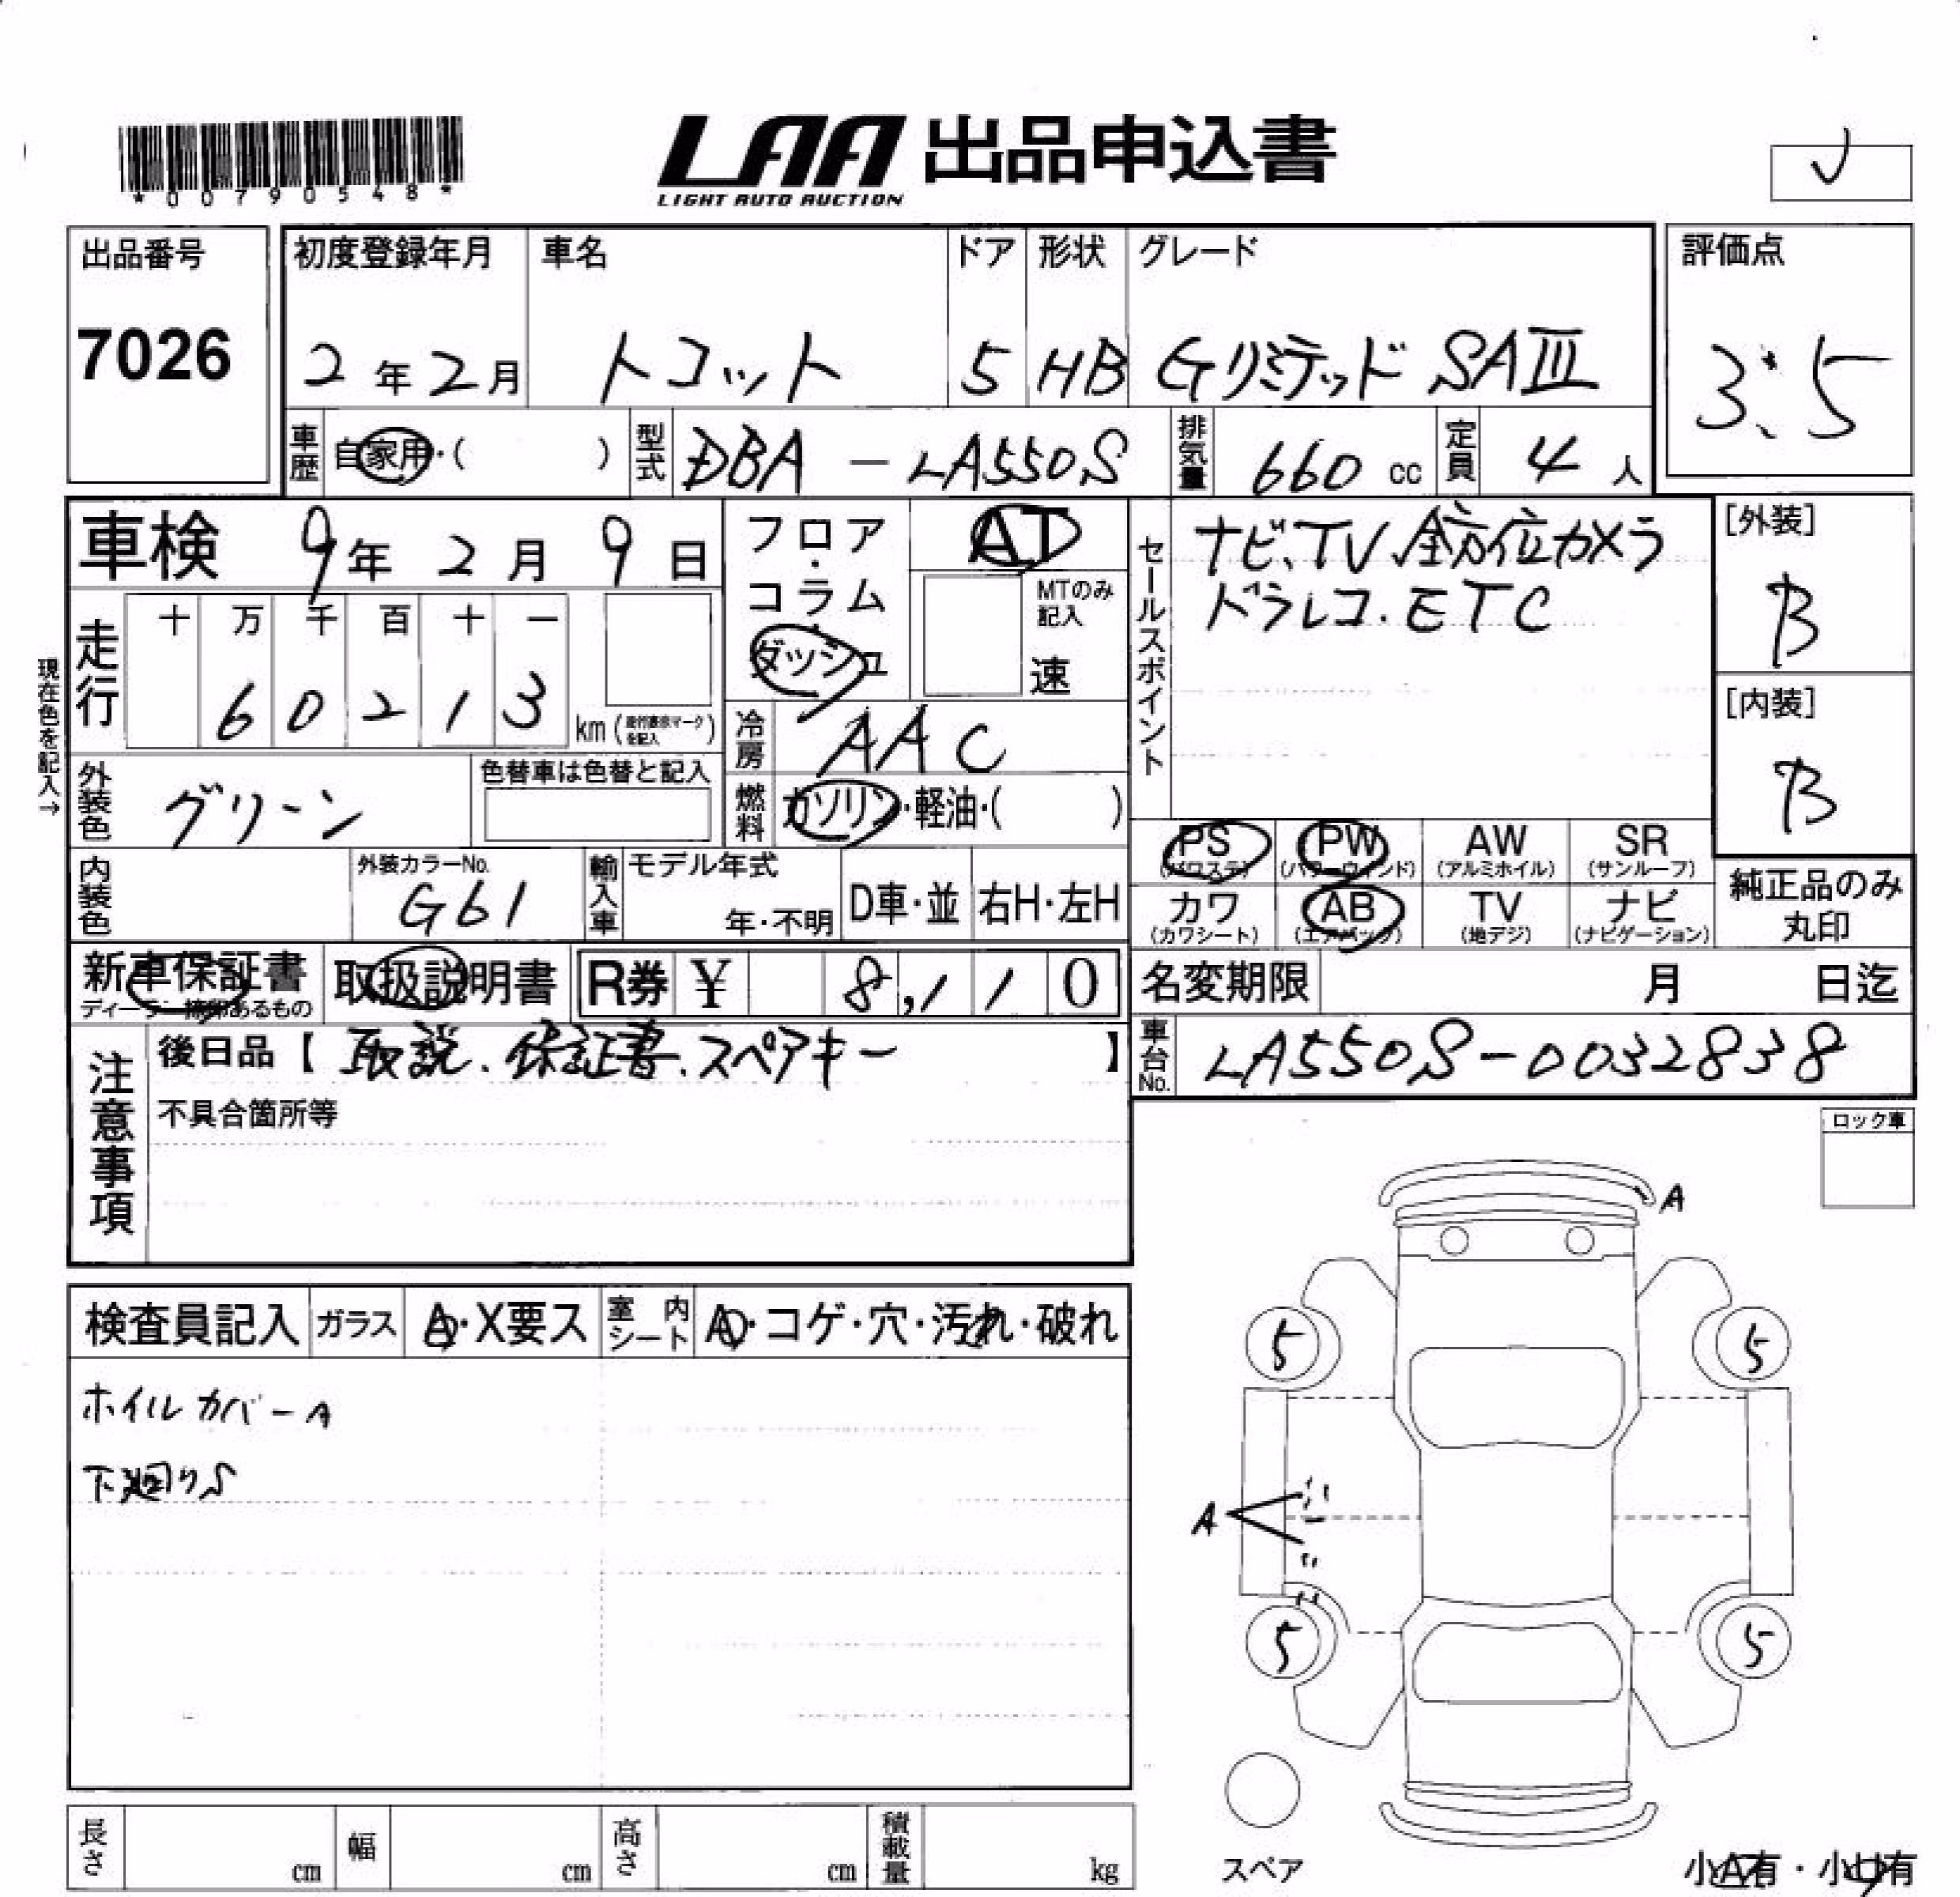 *00790548*
LAA 出品申込書
LIGHT AUTO AUCTION
出品番号
7026
初度登録年月
2年2月
車名
トコット
ドア
5
形状
HB
グレード
Gリミテッド SAIII
評価点
3.5
車歴
自家用・( )
型式
DBA-LA550S
排気量
660 cc
定員
4人
車検 9年2月9日
フロア・コラム・ダッシュ
AT
MTのみ記入
速
セールスポイント
ナビ、TV、全方位カメラ
ドラレコ.ETC
[外装]
B
[内装]
B
現在色を記入→
走行
十 万 千 百 十 一
6 0 2 1 3
km (走行表示マークを記入)
冷房
AAC
外装色
グリーン
色替車は色替と記入
燃料
ガソリン・軽油・( )
内装色
外装カラーNo.
G61
輸入車
モデル年式
年・不明
D車・並
右H・左H
PS (パワステ)
PW (パワーウインド)
AW (アルミホイル)
SR (サンルーフ)
カワ (カワシート)
AB (エアバック)
TV (地デジ)
ナビ (ナビゲーション)
純正品のみ丸印
新車保証書
ディーラー捺印あるもの
取扱説明書
R券 ¥ 8,110
名変期限 月 日迄
注意事項
後日品【取説.保証書.スペアキー】
不具合箇所等
車台No.
LA550S-0032838
ロック車
検査員記入
ガラス
A・X要ス
室内シート
A・コゲ・穴・汚れ・破れ
ホイルカバーA
下廻りS
A
5
5
A
5
5
スペア
小A有・小U有
長さ cm
幅 cm
高さ cm
積載量 kg